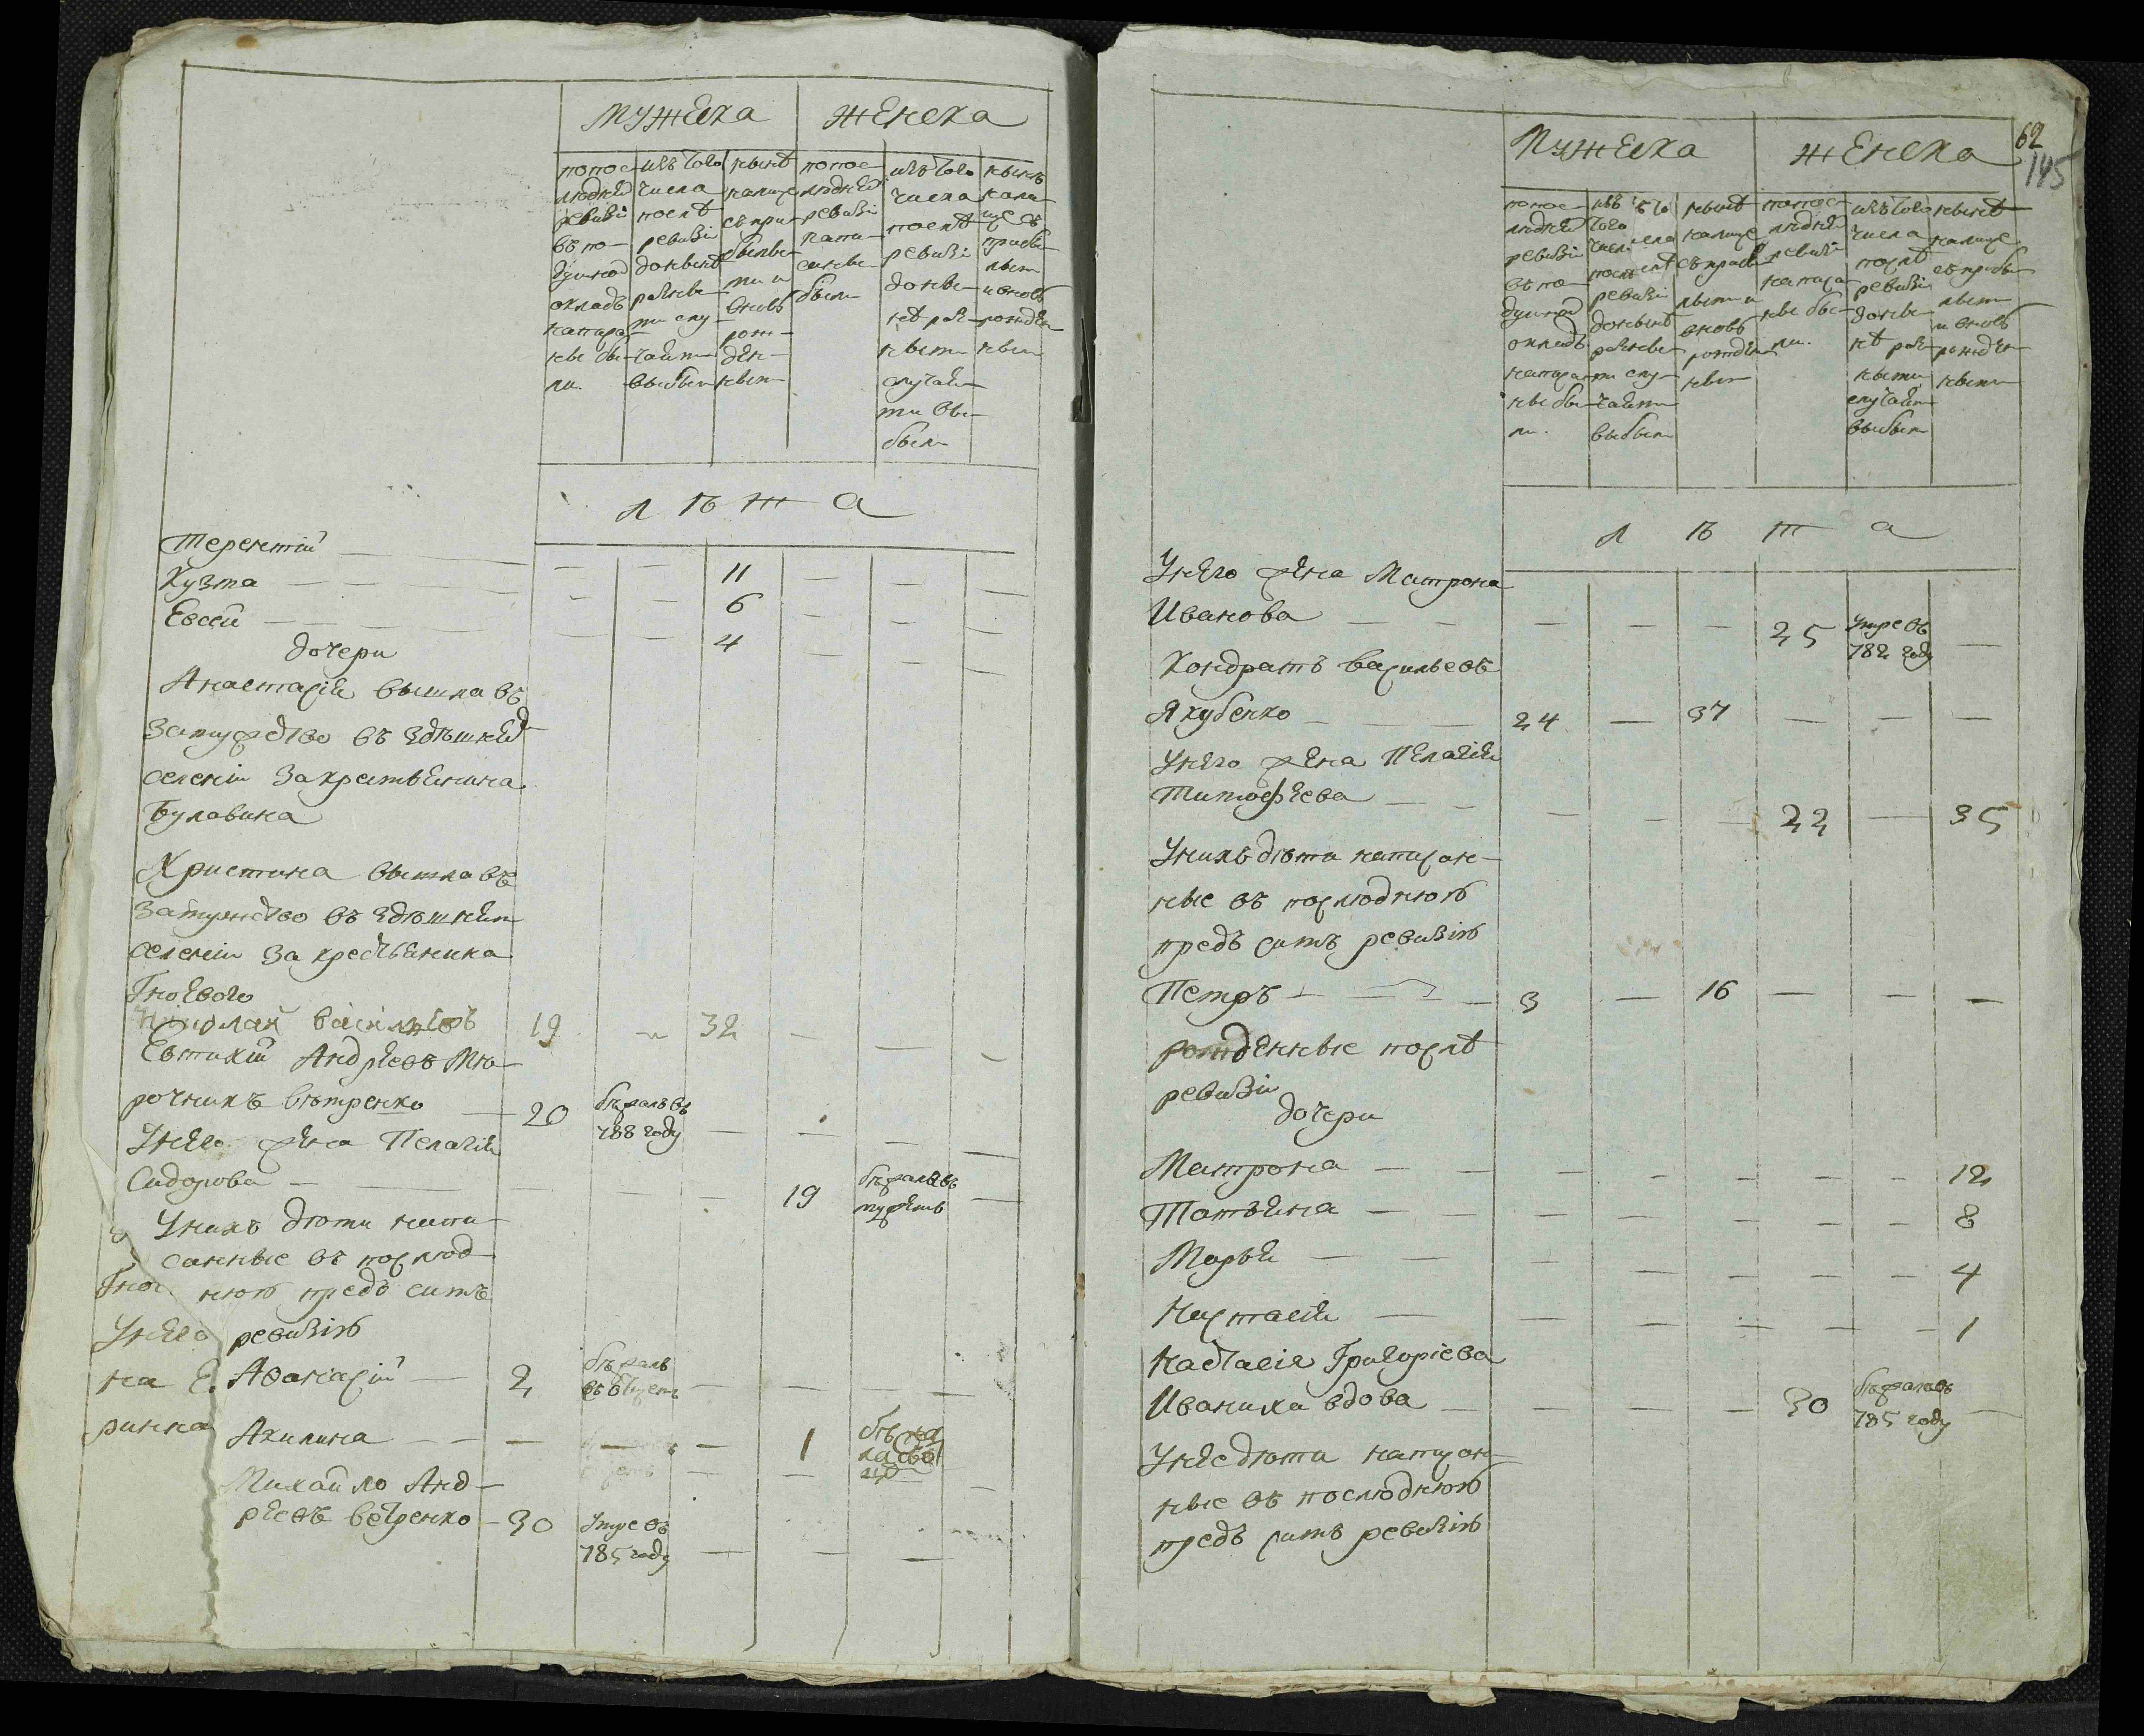 мужеска
женска
попос-
лѣдней
ревизіи
въ по-
душной
окладъ
написа-
ные бы-
ли.
изъ того
числа
послѣ
ревизіи
доныне
разны-
ми слу-
чаями
выбыли
нынѣ
налице
съ при-
былы-
ми и
вновь
рож-
ден-
ными
попос-
лѣдней
ревизіи
напи-
саные
были
изъ того
числа
послѣ
ревизіи
доны-
нѣ раз-
ными
случая-
ми вы-
были
нынѣ
нали-
це съ
прибы-
лыми
и вновь
рожден-
ными
лѣта
Терентій 11
Кузма 6
Евсей 4
дочери
Анастасія вышла въ
замужство въ здѣшней
селеніи за крестьянина
Булавина
Христина вышла въ
замужство въ здѣшнем
селеніи за крестьянина
Гноевого
Василъевъ 19 32
Евтихій Андреевъ Мѣ-
рочникъ вѣтренко 20 бѣжалъ въ 788 году
У него жена Пелагія
Сидорова 19 бѣжала съ мужемъ
У нихъ дѣти напи-
санные въ послѣд-
нюю предъ симъ
ревизію
Гно
У него
на Е.
ринна
Афанасій 2 бѣжалъ съ отцемъ
Акилина 1 бѣжала
Михайло Анд-
реевъ ветренко 30 умре въ 785 году
62
145
Мужеска
женска
попос-
лѣдней
ревизіи
въ по-
душной
окладъ
написа-
ные бы-
ли.
изъ
того
числа
послѣ
ревизіи
донынѣ
разны-
ми слу-
чаями
выбыли
нынѣ
налице
съ прибы-
лыми и
вновь
рожден-
ными
попос-
лѣдней
ревизіи
написа-
ные бы-
ли.
изъ того
числа
послѣ
ревизіи
доны-
нѣ раз-
ными
случаями
выбыли
нынѣ
налице
съ прибы-
лыми
и вновь
рожден-
ными
лѣта
У него жена Матрона
Иванова 25 умре въ 782 году
Кондратъ Васильевъ
Якубенко 24 37
У него жена Пелагія
Тимофѣева 22 35
У нихъ дѣти написан-
ные въ послѣднюю
предъ симъ ревизію
Петръ 3 16
рожденные послѣ
ревизіи
дочери
Матрона 12
Татьяна 8
Марья 4
Настасія 1
Настасія Григоріева
Иваниха вдова 30 бѣжала въ 785 году
У нее дѣти написан-
ные въ послѣднюю
предъ симъ ревизію